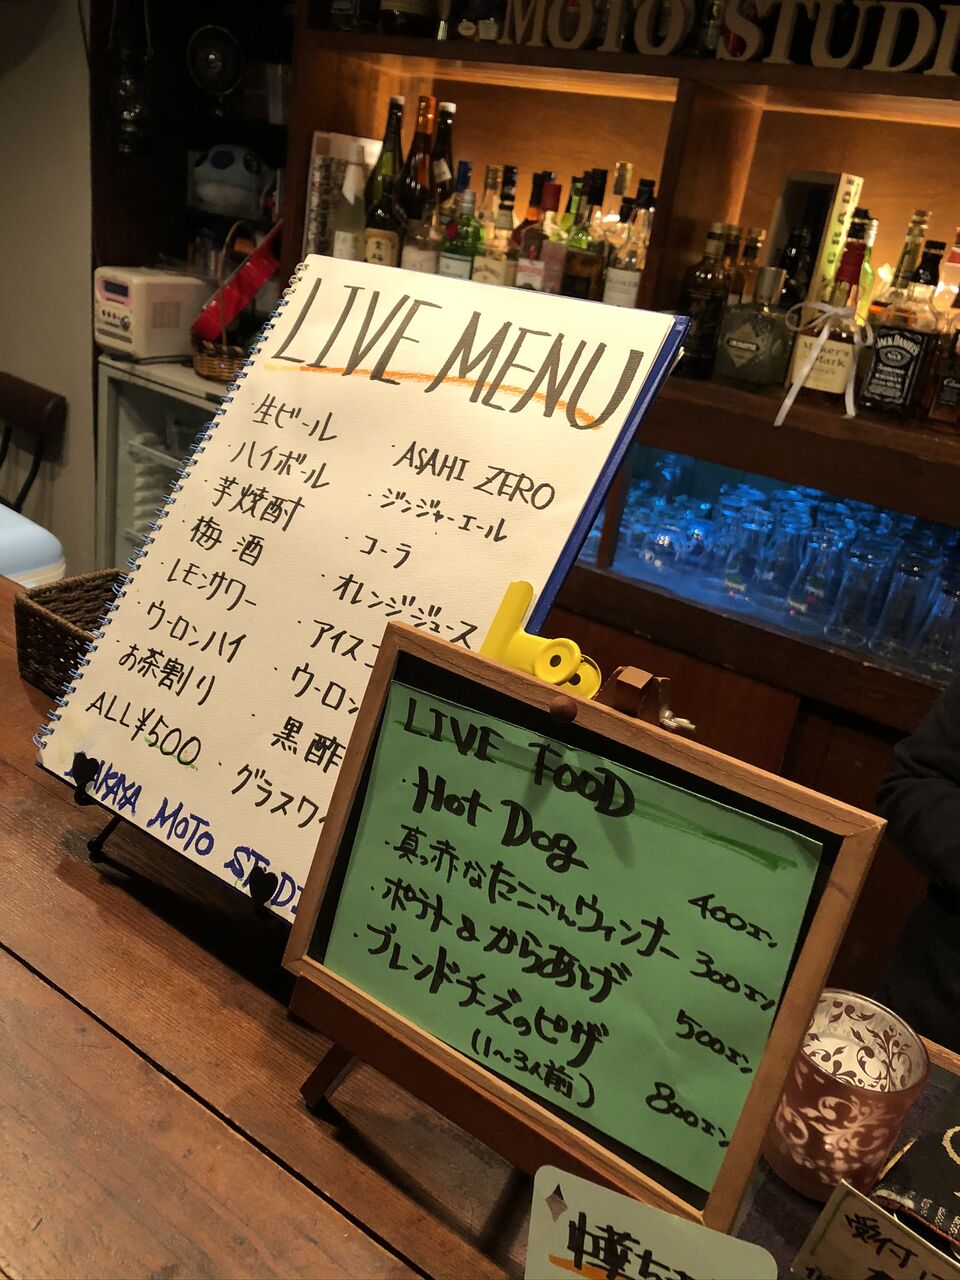 MOTO STUDI
LIVE MENU
・生ビール
・ハイボール
・芋焼酎
・梅酒
・レモンサワー
・ウーロンハイ
・お茶割り
ALL ¥500
・ASAHI ZERO
・ジンジャーエール
・コーラ
・オレンジジュース
・アイス
・ウーロン
・黒酢
・グラスワイ
AKAYA MOTO STUDI
LIVE FOOD
・Hot Dog 400エン
・真っ赤なたこさんウィンナー 300エン
・ポテト&からあげ 500エン
・ブレンドチーズのピザ
(1〜3人前) 800エン
Maker's
Mark
JACK DANIEL'S
受付